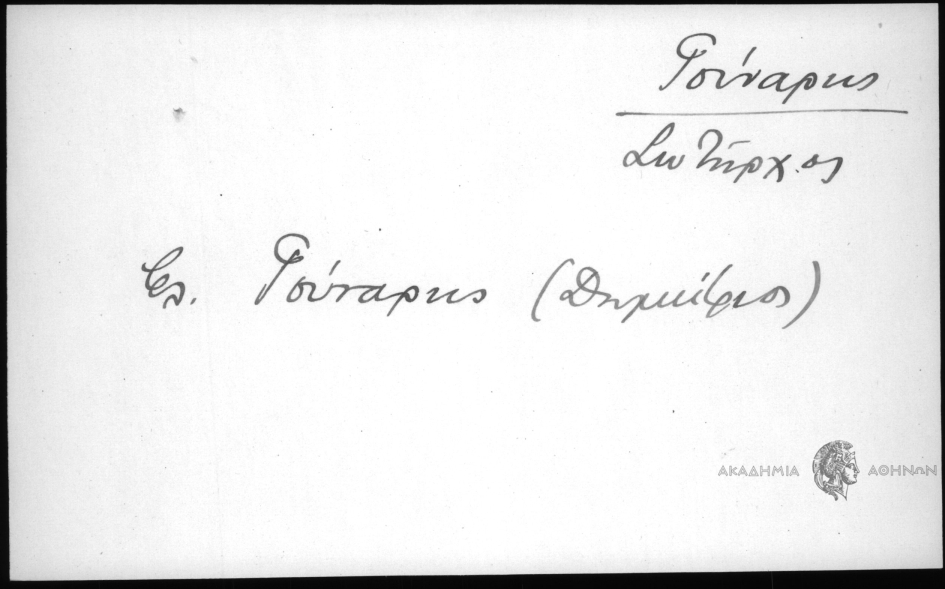 Γούναρης
Σωτήρχος
Βλ. Γούναρης (Δημήτριος)
ΑΚΑΔΗΜΙΑ ΑΘΗΝΩΝ